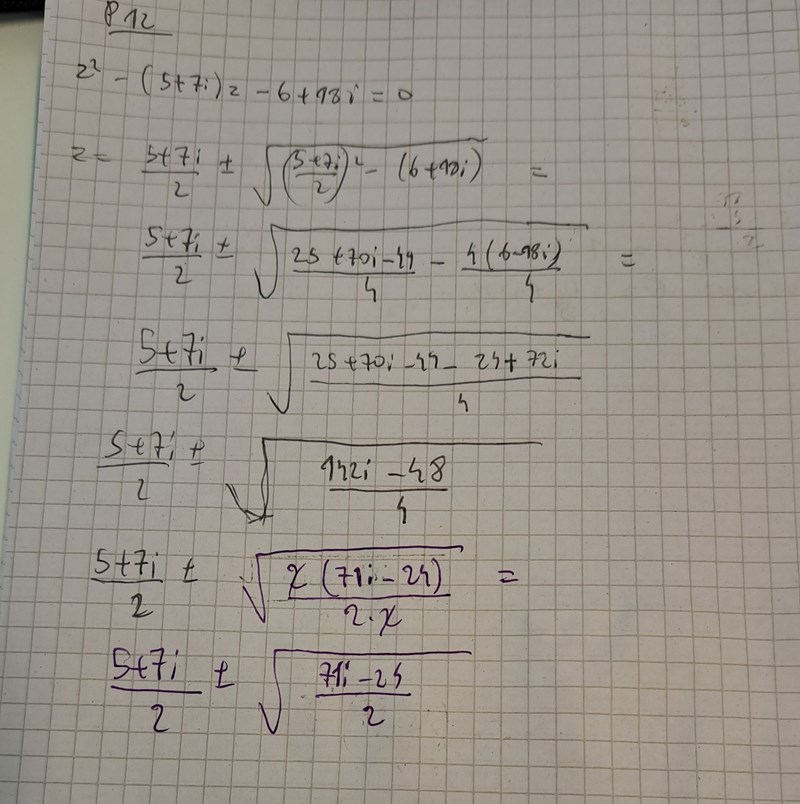 P12
z² - (5+7i)z - 6+18i = 0
z = (5+7i)/2 ± √(((5+7i)/2)² - (6+18i)) =
(5+7i)/2 ± √((25+70i-49)/4 - 4(6-18i)/4) =
(5+7i)/2 ± √((25+70i-49-24+72i)/4)
(5+7i)/2 ± √((142i-48)/4)
(5+7i)/2 ± √(2(71i-24)/(2·2)) =
(5+7i)/2 ± √((71i-24)/2)